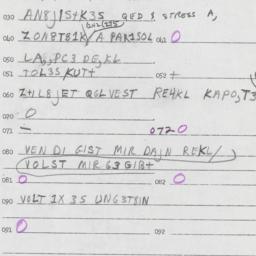 030 AN8JIS+K35 QED $ STRESS A,
040 ZON8T81K/A PAK1SOL 041 O
050 LA,,PC3 DE,KL
051 TOL35/KUT+ 052 +
060 Z+IL8JET QGLVEST RE4KL KAPO,T3
070 O
071 — 072 O
080 VEN DI GIST MIR DAJN REKL/
VOLST MIR 63 GIB+
081 O 082 O
090 VOLT 1X 35 UNG3T8IN
091 O 092